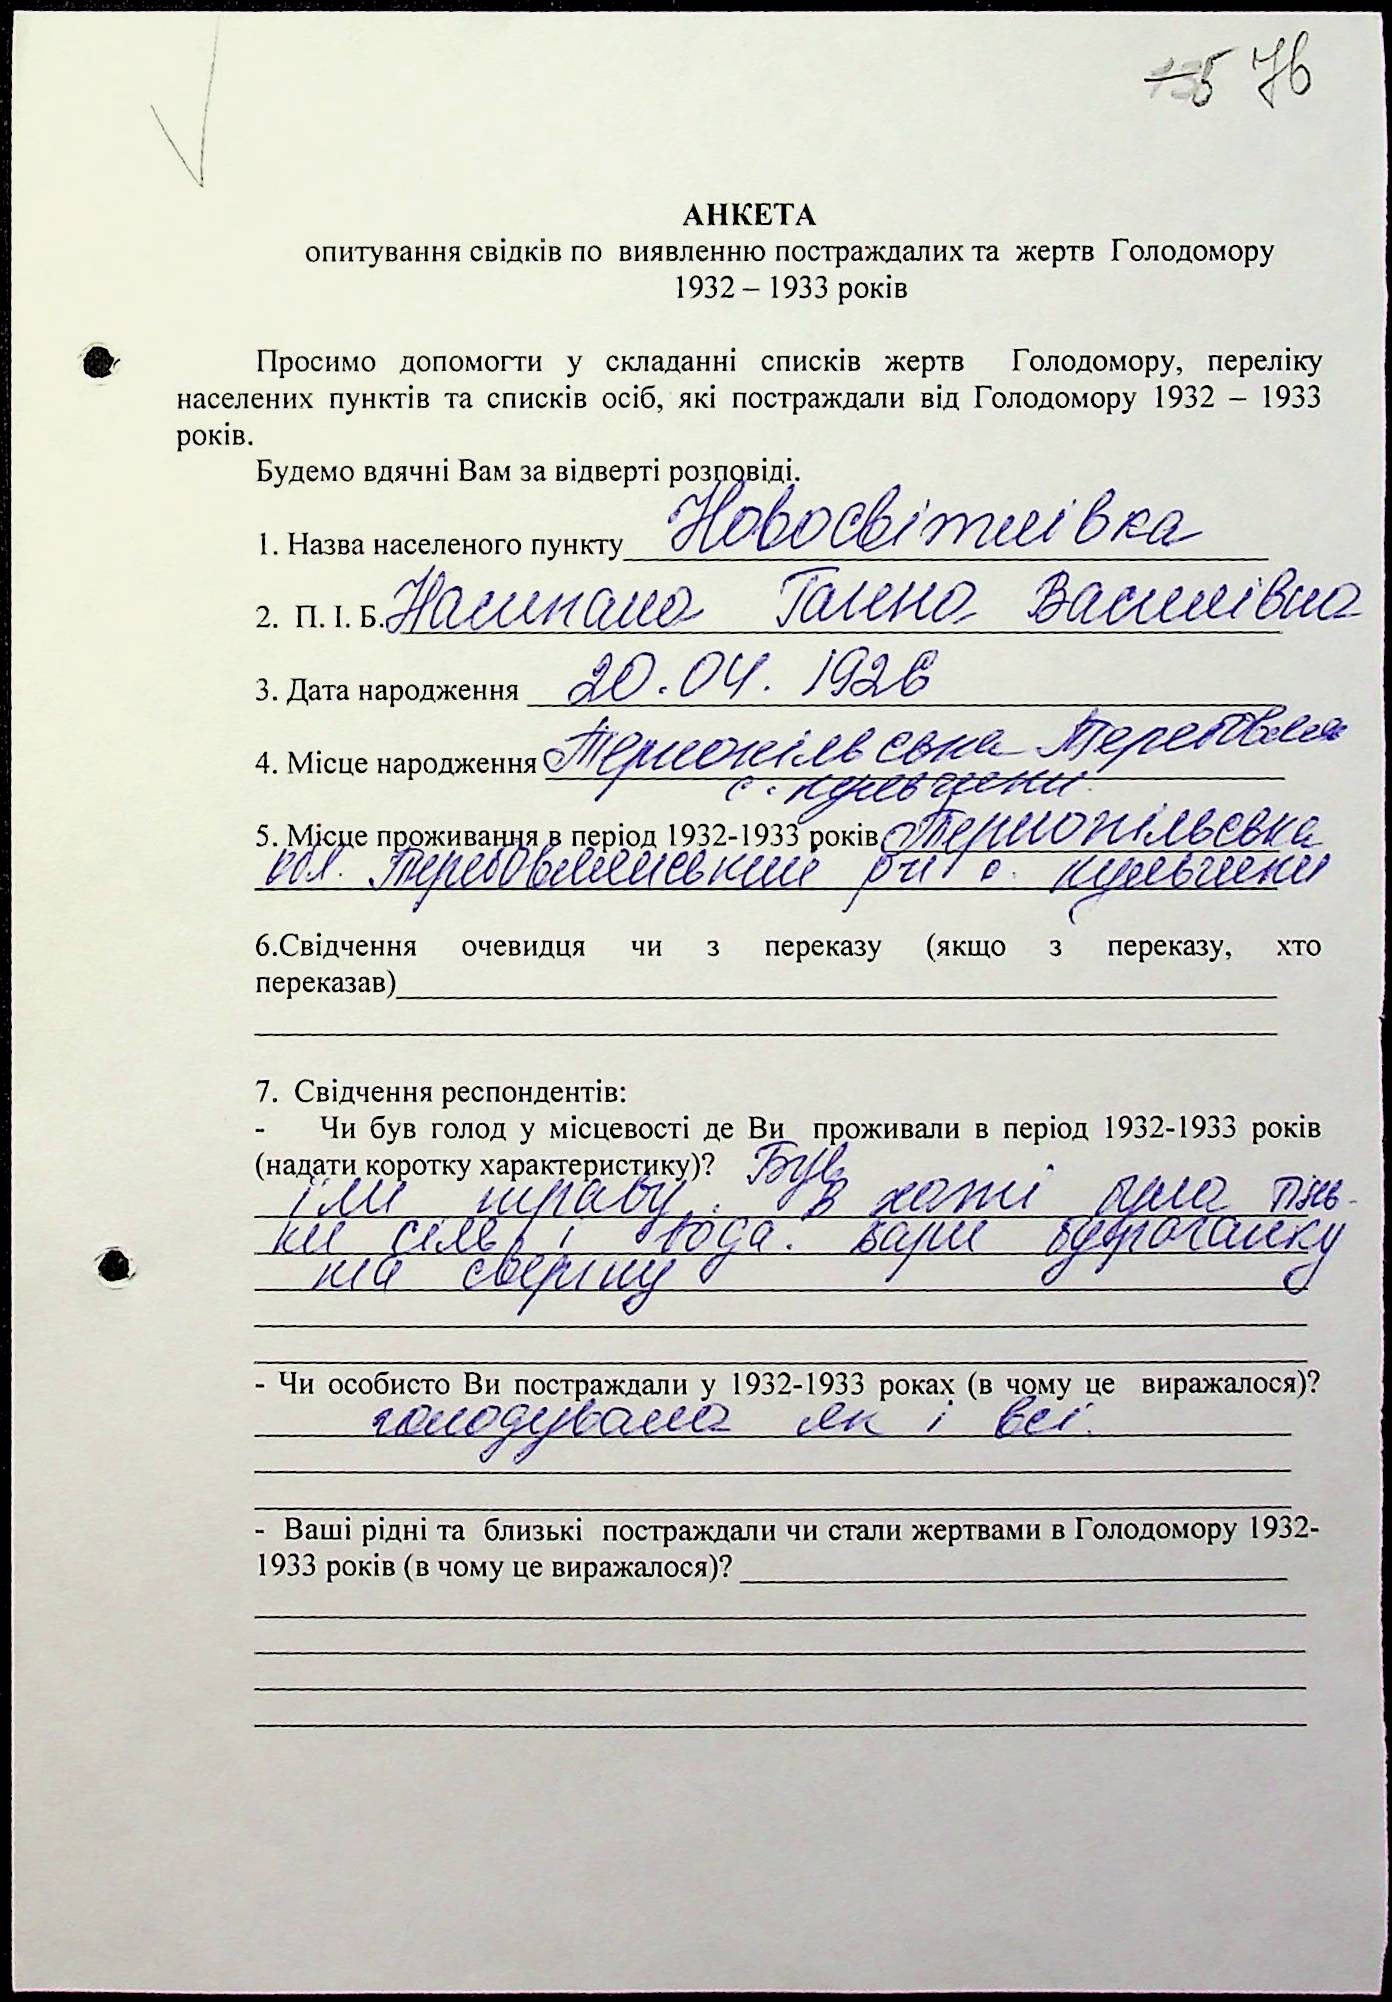 76
АНКЕТА
опитування свідків по виявленню постраждалих та жертв Голодомору
1932 – 1933 років
Просимо допомогти у складанні списків жертв Голодомору, переліку
населених пунктів та списків осіб, які постраждали від Голодомору 1932 – 1933
років.
Будемо вдячні Вам за відверті розповіді.
1. Назва населеного пункту Новосвітлівка
2. П. І. Б. Налипала Ганна Василівна
3. Дата народження 20.04.1926
4. Місце народження Тернопільська Теребовля
с. Кульчики
5. Місце проживання в період 1932-1933 років Тернопільська
обл. Теребовлянський р-н с. Кульчики
6.Свідчення очевидця чи з переказу (якщо з переказу, хто
переказав)
7. Свідчення респондентів:
- Чи був голод у місцевості де Ви проживали в період 1932-1933 років
(надати коротку характеристику)? Був
їли траву. В хаті була тіль-
ки сіль і вода.
та сверіпу
- Чи особисто Ви постраждали у 1932-1933 роках (в чому це виражалося)?
голодувала як і всі.
- Ваші рідні та близькі постраждали чи стали жертвами в Голодомору 1932-
1933 років (в чому це виражалося)?